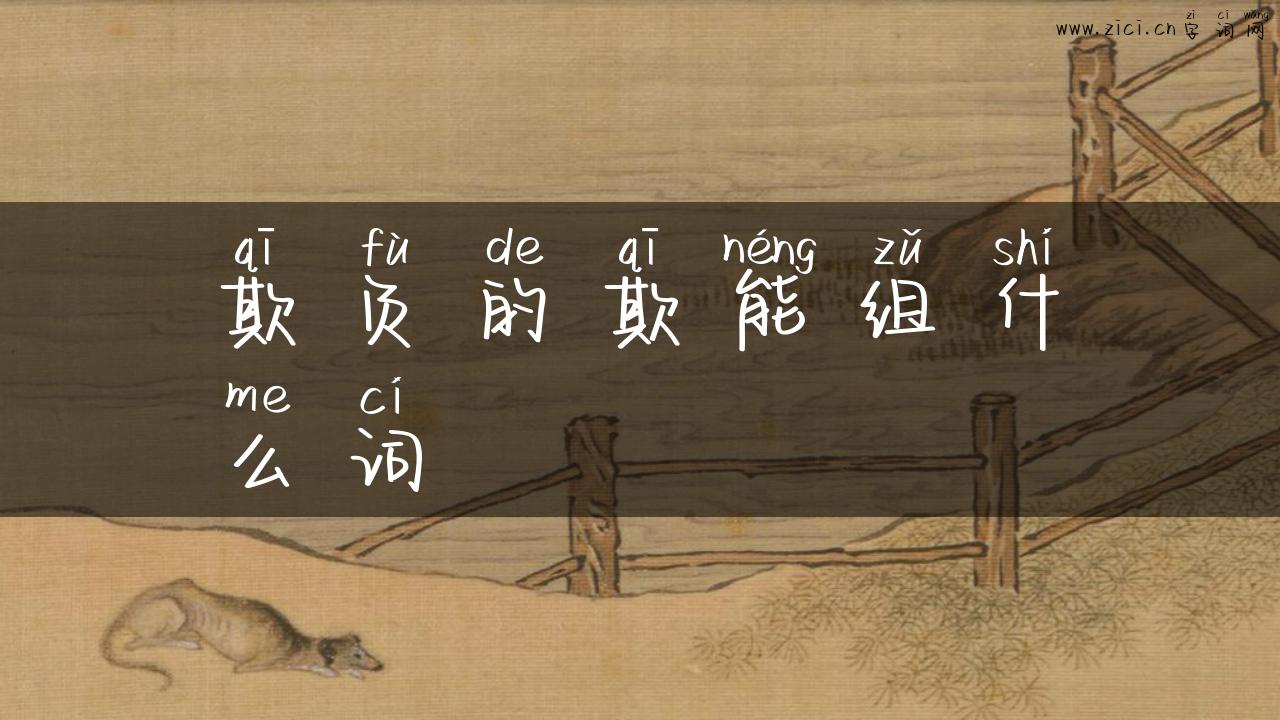 zì cí wǎng
www.zici.cn 字词网
qī fù de qī néng zǔ shí
欺负的欺能组什
me cí
么词